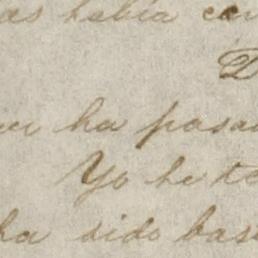 as había
D
ha pasa
Yo he te
ha sido bas